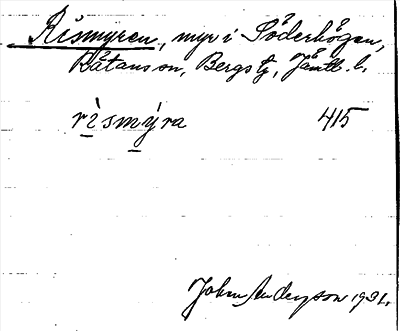 Rismyren, myr i Söderhögen,
Råtans sn, Bergs tg, Jämtl. l.
rìsmýra 415
John Anderson 1931.